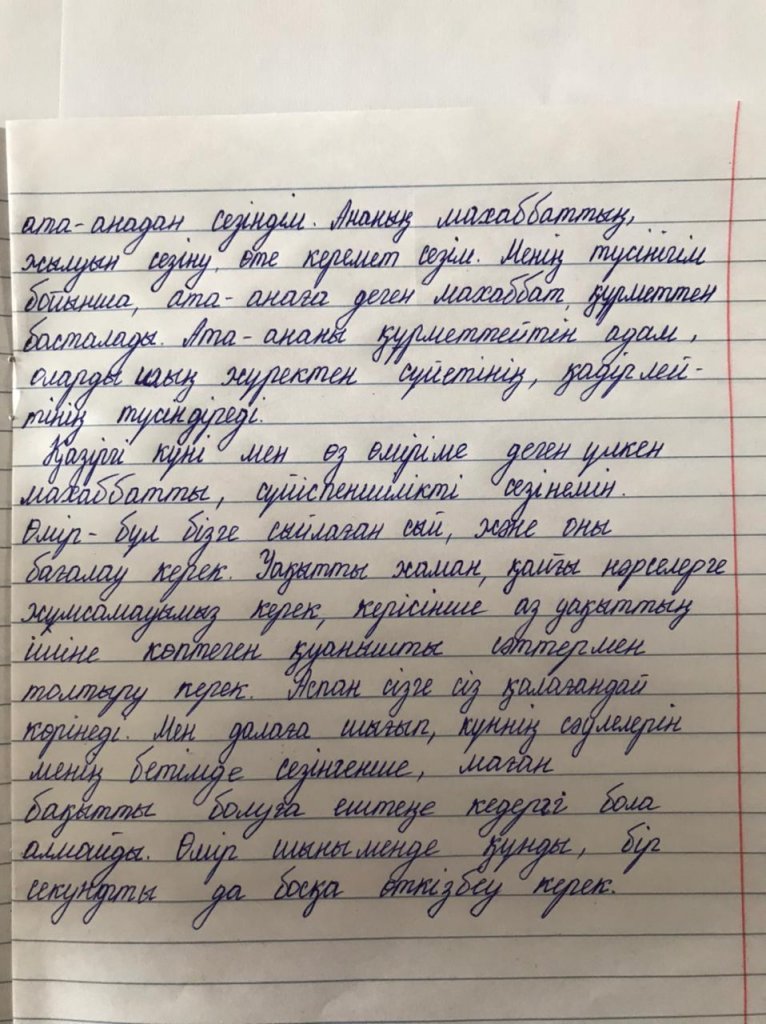 ата-анадан сезіндім. Ананың махаббаттың,
жылуын сезіну, өте керемет сезім. Менің түсінігім
бойынша, ата-анаға деген махаббат, құрметтен
басталады. Ата-ананы құрметтейтін адам,
оларды шың жүректен сүйетінің, қадірлей-
тінің түсіндіреді.
Қазіргі күні мен өз өміріме деген үлкен
махаббатты, сүйіспеншілікті сезінемін.
Өмір - бұл бізге сыйлаған сый, және оны
бағалау керек. Уақытты жаман, қайғы нәрселерге
жұмсамауымыз керек, керісінше аз уақыттың
ішіне көптеген қуанышты сәттермен
толтыру керек. Аспан сізге сіз қалағандай
көрінеді. Мен далаға шығып, күннің сәулелерін
менің бетімде сезінгенше, маған
бақытты болуға ештеңе кедергі бола
алмайды. Өмір шыныменде құнды, бір
секундты да босқа өткізбеу керек.